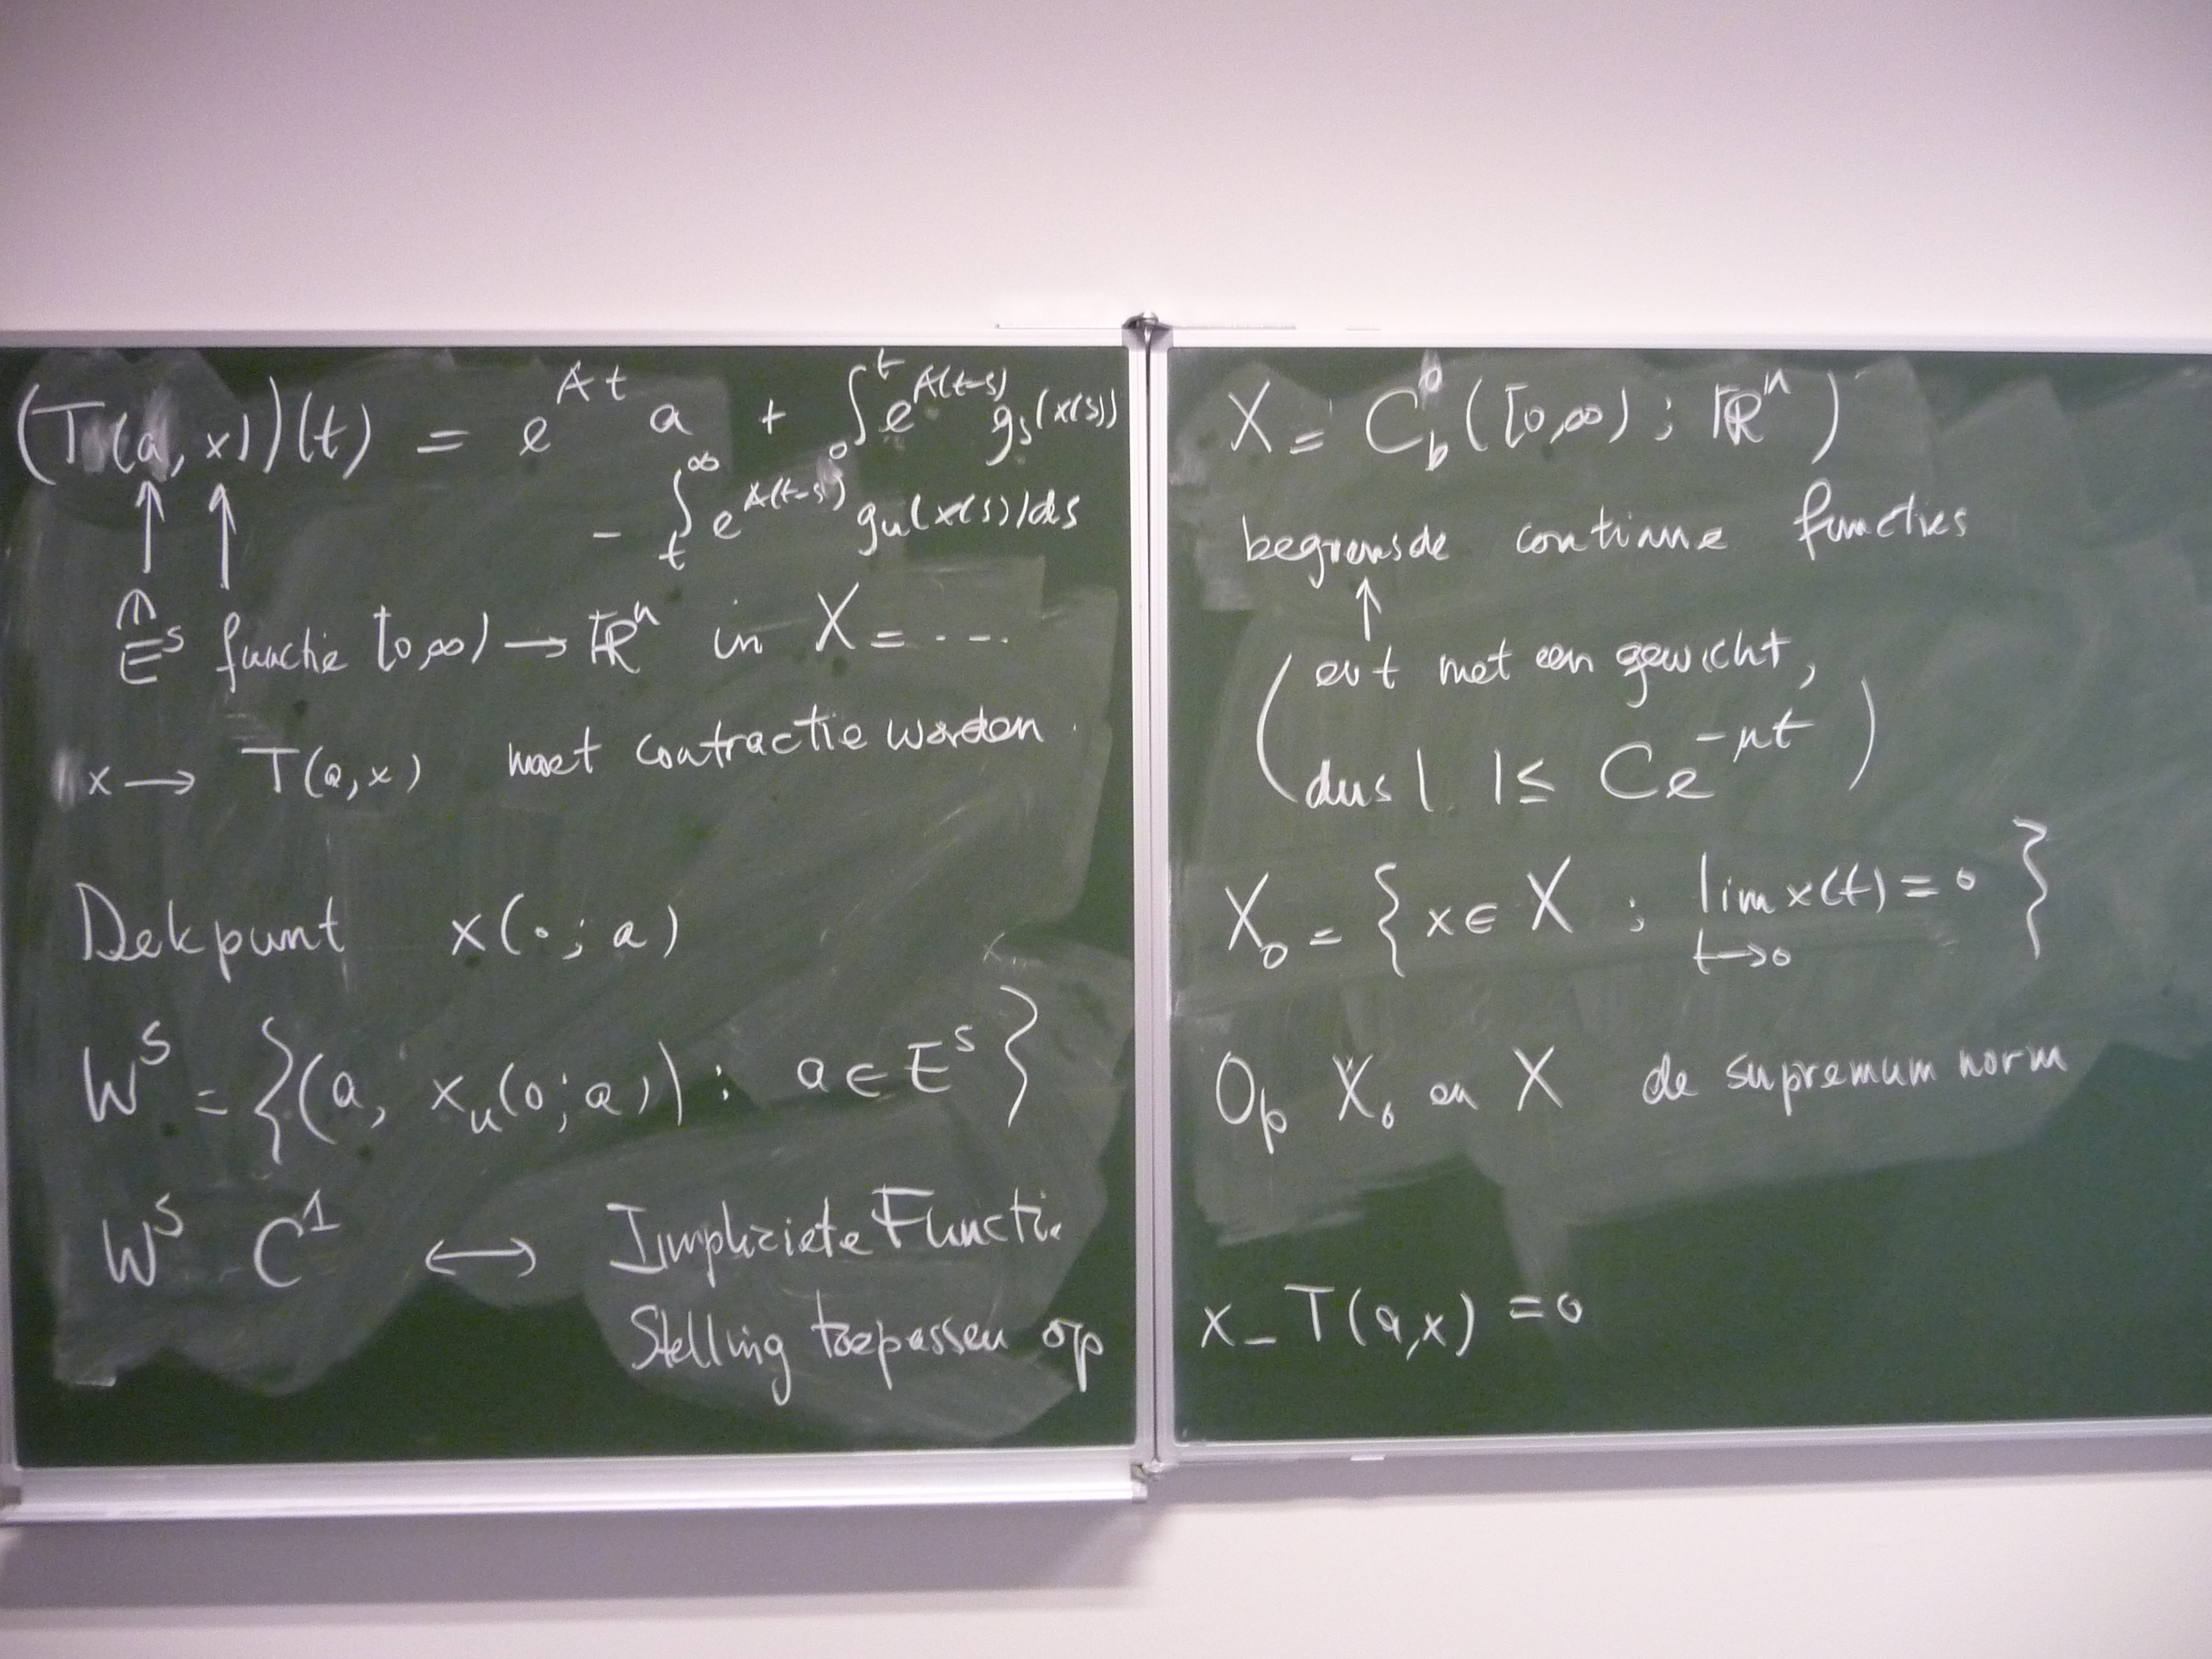 (T(a, x))(t) = e^{At} a + ∫_0^t e^{A(t-s)} g_s(x(s))
- ∫_t^∞ e^{A(t-s)} g_u(x(s))ds
↑ ↑
∩
E^s functie [0,∞) → ℝ^n in X = ....
x → T(a, x) moet contractie worden
Dekpunt x(·; a)
W^s = {(a, x_u(0; a)) : a ∈ E^s}
W^s C^1 ↔ Impliciete Functie
Stelling toepassen op
X = C_b^0([0,∞) ; ℝ^n)
begrensde continue functies
↑
(evt met een gewicht,
dus | . | ≤ Ce^{-μt})
X_0 = {x ∈ X ; lim x(t) = 0}
t→0
Op X_0 en X de supremum norm
x - T(a,x) = 0